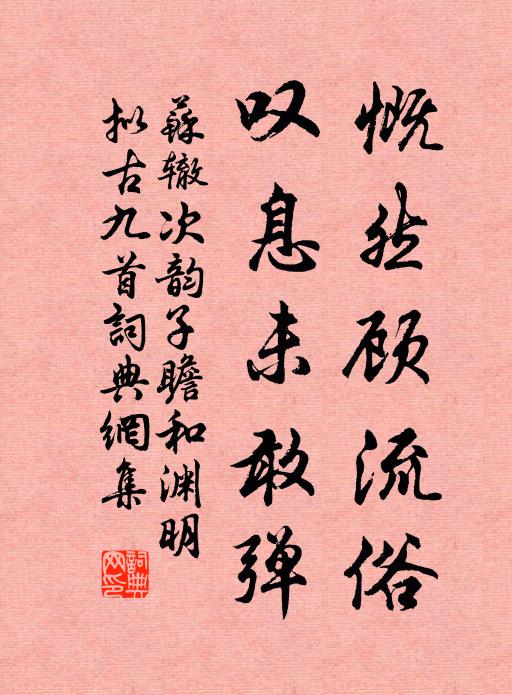 慨然顾流俗
叹息未敢弹
蘇辙次韵子瞻和渊明
拟古九首詞典網集
詞典
网印